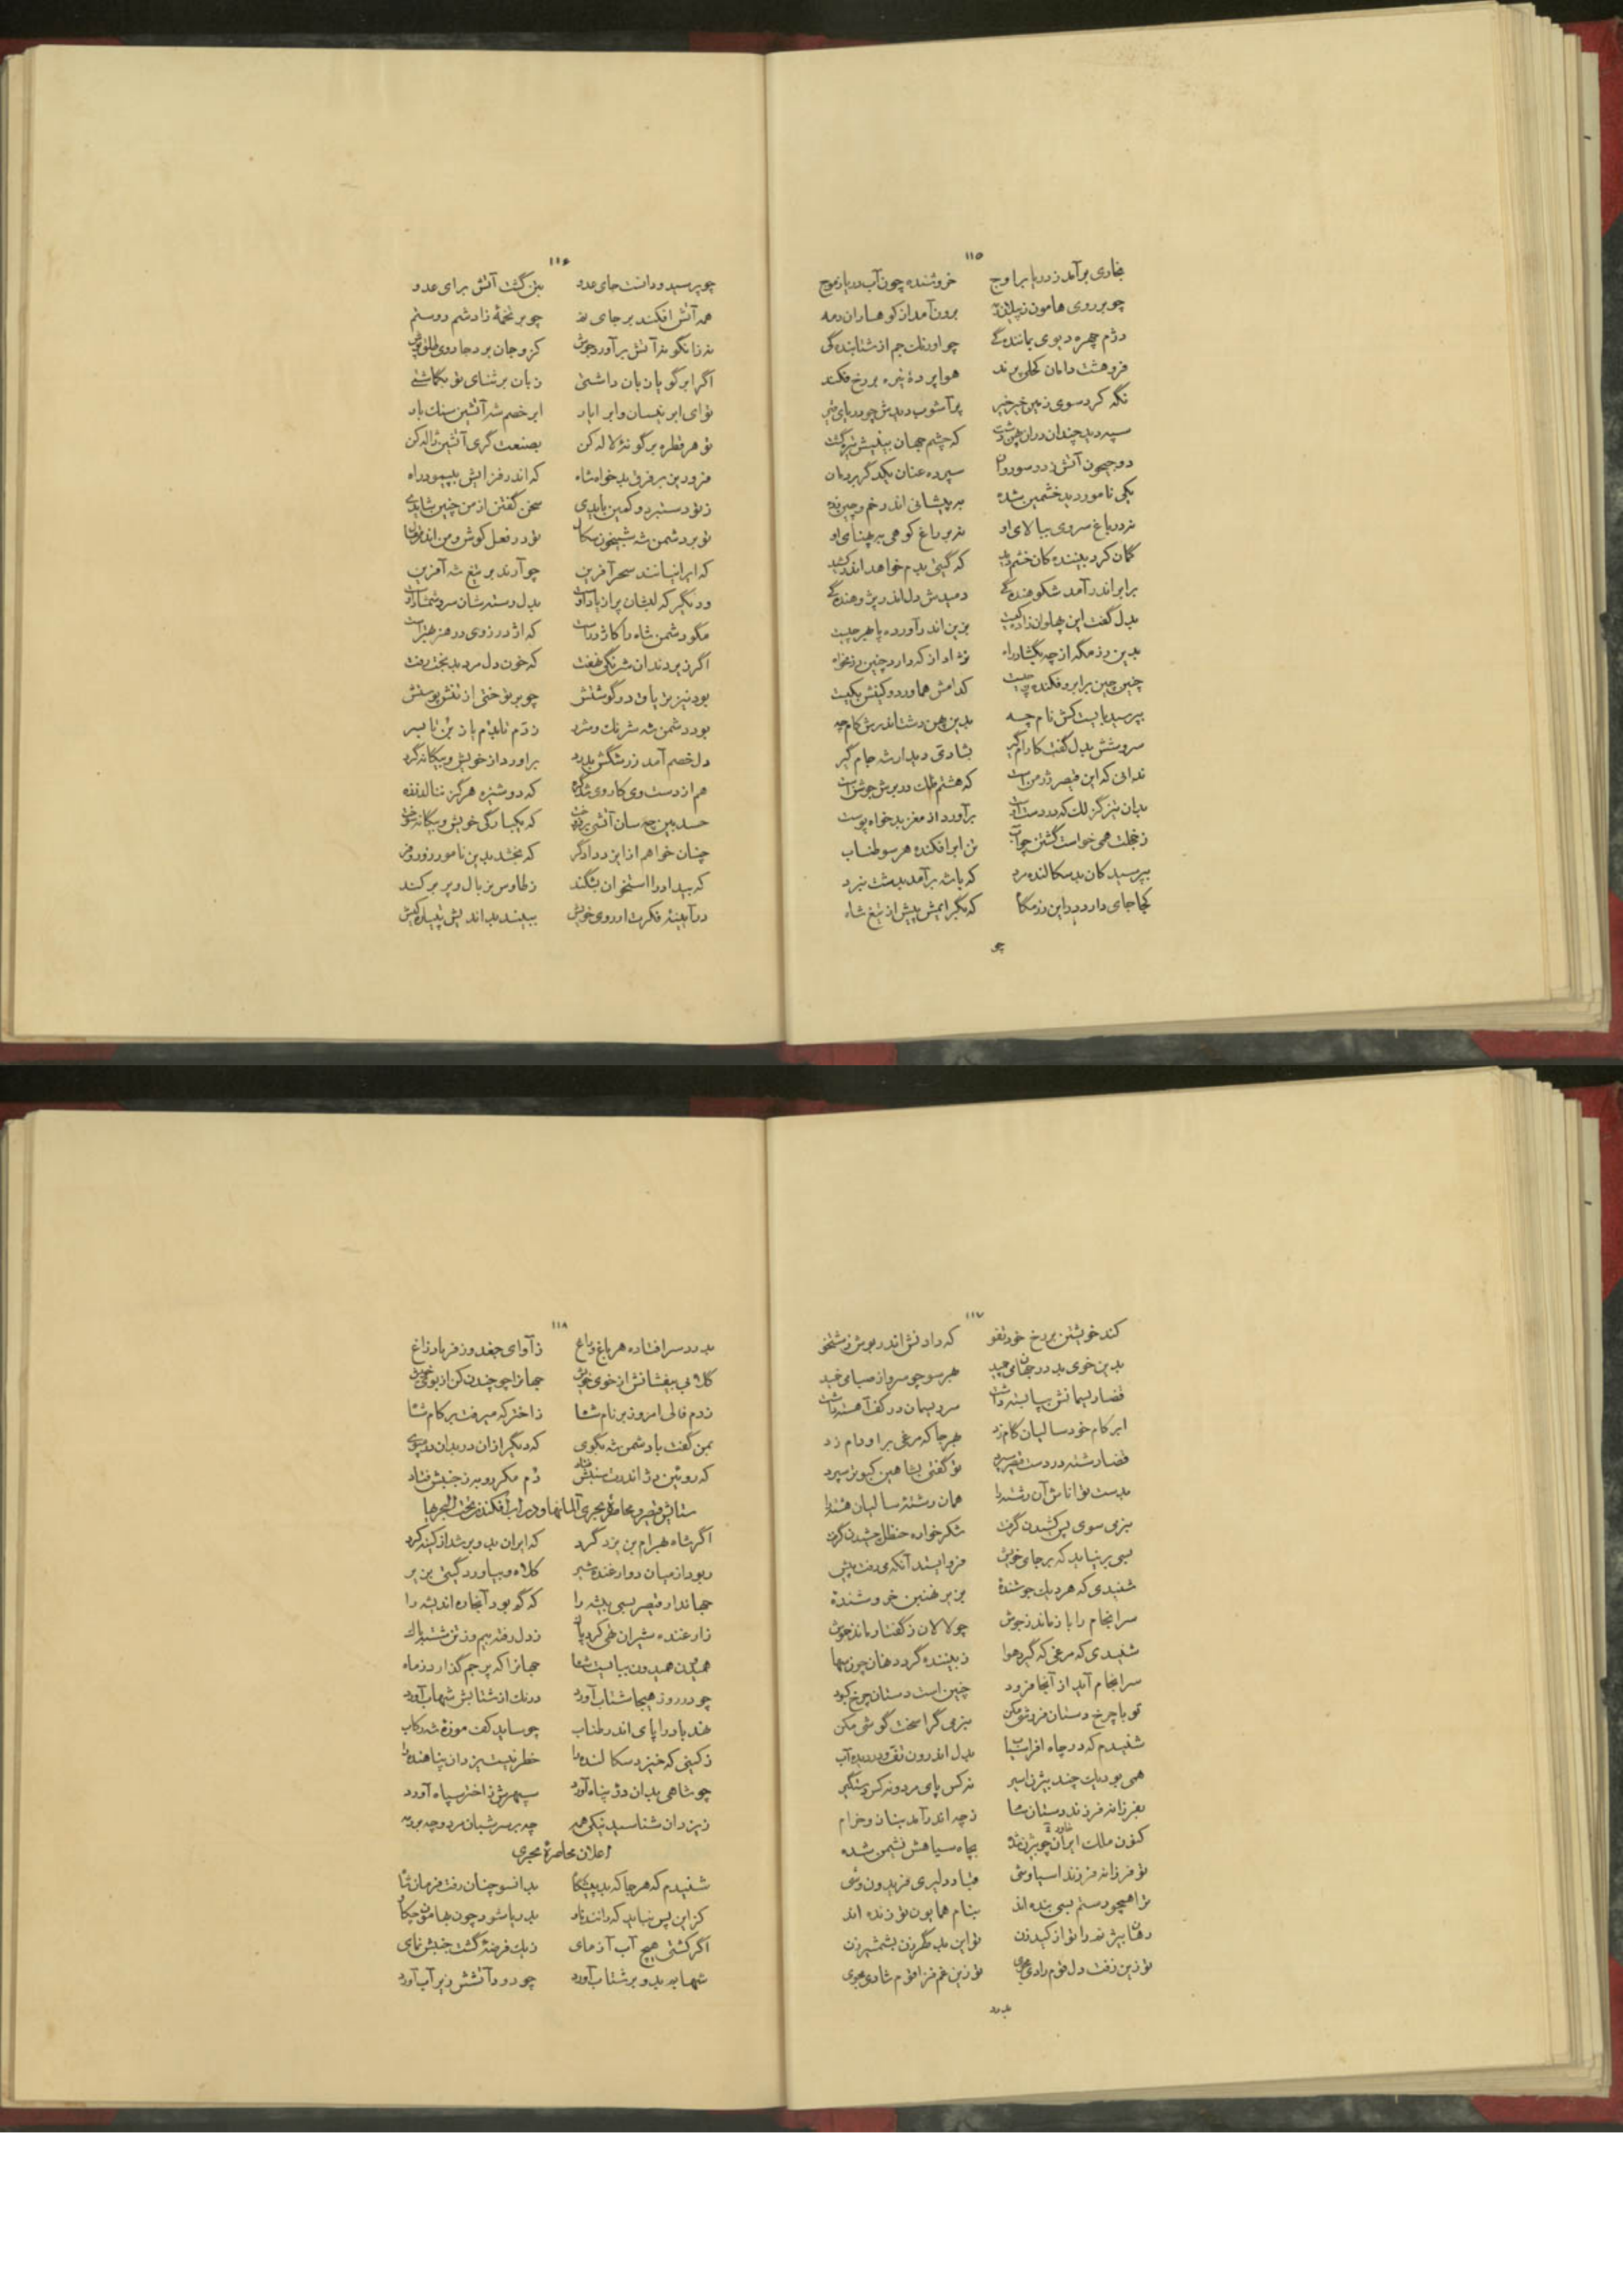 ۱۱۵
بخاری برآمد ز دریا براوج خروشنده چون آب دریا ز موج
چو بر روی هامون ز پیلان رمه برون آمد از کوهساران دمه
دژم چهره دیوی بمانندگی چو اورنگ جم از شتابندگی
فروهشت دامان کحلی پرند هوا پردهٔ تیره بر رخ فکند
نگه کرد سوی زمین خیر خیر پر آشوب دیدش چو دریای قیر
سپه دید چندان در آن پهن دشت که چشم جهان بینیش تیره گشت
دو جیحون آتش ز دو سو روان سپرده عنان یکدگر بردمان
یکی نامور دید خشمین شده به پیشانی اندر خم و چین زده
نه در باغ سروی ببالای او نه بر راغ کوهی به پهنای او
گمان کرد بیننده کان خشم دید که گیتی بدم خواهد اندر کشید
برابر اندر آمد شکوهندگی دمیدش دل اندر پژوهندگی
بدل گفت این پهلوان زاد کیست بزین اندر آورده پا بهر چیست
بدین رزمگه از چه بگشاد راه نژاد از که دارد چنین رزمخواه
چنین چین بر ابرو فکنده ز چیست کدامش هماورد و کینش بکیست
بپرسید بایست کش نام چه بدین پهن دشت اندرش کام چه
سروشش بدل گفت کارام گیر بشادی دیدار شه جام گیر
ندانی که این قیصر رزمن است که هشتم فلک در برش جوشن است
بدان تیز گزلک که در دست اوست برآورد از مغز بدخواه پوست
ز خجلت همی خواست گشتن چو آب تن ابر افکنده هر سو طناب
بپرسید کان بد سکالنده مرد که با شه برآمد بدشت نبرد
کجا جای دارد در این رزمگاه که بگرایمش پیش از تیغ شاه
چو
۱۱۶
چو پرسید و دانست جای عدو بتن گشت آتش برای عدو
همه آتش افکند بر جای نم چو بر تخمهٔ زادشم روستم
نه زانگونه آتش برآورد جوش کزو جان برد جادوی
اگر ابر گویا زبان داشتی زبان بر ثنای تو بگماشتی
تو ای ابر نیسان و ابر ایار ابر خصم شه آتشین سنگ بار
تو هر قطره بر گونهٔ لاله کن بصنعت گری آتشین ژاله کن
فرود ین بر فرق بدخواه شاه که اندر فزایش بپیمود راه
ز تو دستبرد و کمین بایدی سخن گفتن از من چنین شایدی
تو بر دشمن شه شبیخون سگال تو در فعل کوش و من اندر
که ایرانیانند سحر آفرین چو آرند بر تیغ شه آفرین
و دیگر که لبشان پر از یاد اوست بدل دسته شان
مگو دشمن شاه را کاژدر است که اژدر ز وی در هنر بهتر است
اگر زیر دندان شرنگی نهفت که خون دل مرد بدبخت رفت
بود نیز تریاق در گوشتش چو بر توختی از تنش پوستش
بود دشمن شه شرنگ و شرر ز دم تا بدم پا ز بن تا بسر
دل خصم آمد ز رشگش بدرد برآورد از خویش و بیگانه گرد
هم از دست وی کار وی شد که دوشیزه هرگز
حسد بین چه سان آتشی بر که یکبارگی خویش و بیگانه سوخت
چنان خواهم از ایزد دادگر که بخشد بدین نامور زور و فر
که بیداد را استخوان بشکند ز طاوس نر بال و پر بر کند
در آیینهٔ فکرت او روی خویش ببیند بداندیش کیش
۱۱۷
کند خویشتن بر رخ خود تفو که دادنش اندر بروش زشتخو
بدین خوی بد در جهان می‌چمید بهر سو چو سرو از صبا می خمید
قضا ریسمانش بپا بسته داشت سر ریسمان در کف آهسته داشت
ابر کام خود سالیان گام زد بهر جا که مرغی بر او دام زد
قضا رشته در دست قیصر سپرد تو گفتی بشاهین کبوتر سپرد
بدست توانا ش آن رشته را همان رشتهٔ سالیان هشته را
بنرمی سوی پس کشیدن گرفت شکر خواره حنظل چشیدن گرفت
بسی برنیاید که بر جای خویش فرو ایستد آنکه می رفت پیش
شنیدی که هر دیک جوشندهٔ بزیر نهنبن خروشندهٔ
سرانجام را باز ماند ز جوش چو لالان ز گفتار ماند خموش
شنیدی که مرغی که گیرد هوا ز بیننده گردد نهان چون سها
سرانجام آید از آنجا فرود چنین است دستان چرخ کبود
تو با چرخ دستان فروشی مکن بنرمی گرا سخت گوشی مکن
شنیدم که در چاه افراسیاب بدل اندرون تف و در دیده آب
همی بود یک چند بیژن اسیر نه کس پایمرد و نه کس دستگیر
بفرزانه فرزند دستان سام ز چه اندر آمد بناز و خرام
کنون ملک ایران چو بیژن شده بچاه سیاهش نشیمن شده
تو فرزانه فرزند اسپاوشی قباد دلیری فریدون وشی
ترا همچو رستم بسی بنده اند بنام همایون تو زنده اند
رهان بیژنت را تو از کید زن تو این بد گهر زن بشمشیر زن
تو زین زفت دل قوم رادی مجوی تو زین غم فزا قوم شادی مجوی
بدرد
۱۱۸
بدرد سر افتاده هر باغ و راغ ز آوای جغد و ز فریاد زاغ
گلابی بیفشانش از خوی خویش جهانرا چو چندن کن از بوی خویش
زدم فالی امروز بر نام شاه ز اختر که میرفت بر کام شاه
بمن گفت با دشمن شه بگوی که دیگر از آن در بدان در مپوی
که روئین دژ اندر فتاد دم مکر روبه ز جنبش فتاد
ستایش قیصر و محاصرهٔ بحری آلمانها و در آب افکندن تحت البحریها
اگر شاه بهرام بن یزدگرد که ایران بدو بر شد از کینه گرد
ربود از میان دو ارغنده شیر کلاه و بیاورد گیتی بزیر
جهاندار قیصر بسی بیشه را که گم بود آنجا ره اندیشه را
ز ارغنده شیران تهی کرد پاک ز دل رفته بیم و ز تن شسته باک
همیدون همیدون ببایست شاه جهانرا که پرچم گذارد ز ماه
چو در روز هیجا شتاب آورد درنگ از شتابش شهاب آورد
نهد باد را پای اندر طناب چو ساید کف موزهٔ شه رکاب
ز کینی که خیزد سکالنده را خطر نیست یزدان پناهنده را
چو شاهی بدان دژ پناه آورد سپهرش ز اختر سپاه آورد
ز یزدان شناسید نیکی همه چه بر سر شبان مرد و چه بر رمه
اعلان محاصرهٔ بحری
شنیدم که هر جا که بد پیشگاه بدانسو چنان رفت فرمان شاه
کز این پس نباید که رانند ناو بدریا شود چون بهامون
اگر کشتی هیچ آب آزمای ز یک فرضهٔ گشت جنبش نمای
شهابه بدو بر شتاب آورد چو دود آتشش زیر آب آورد